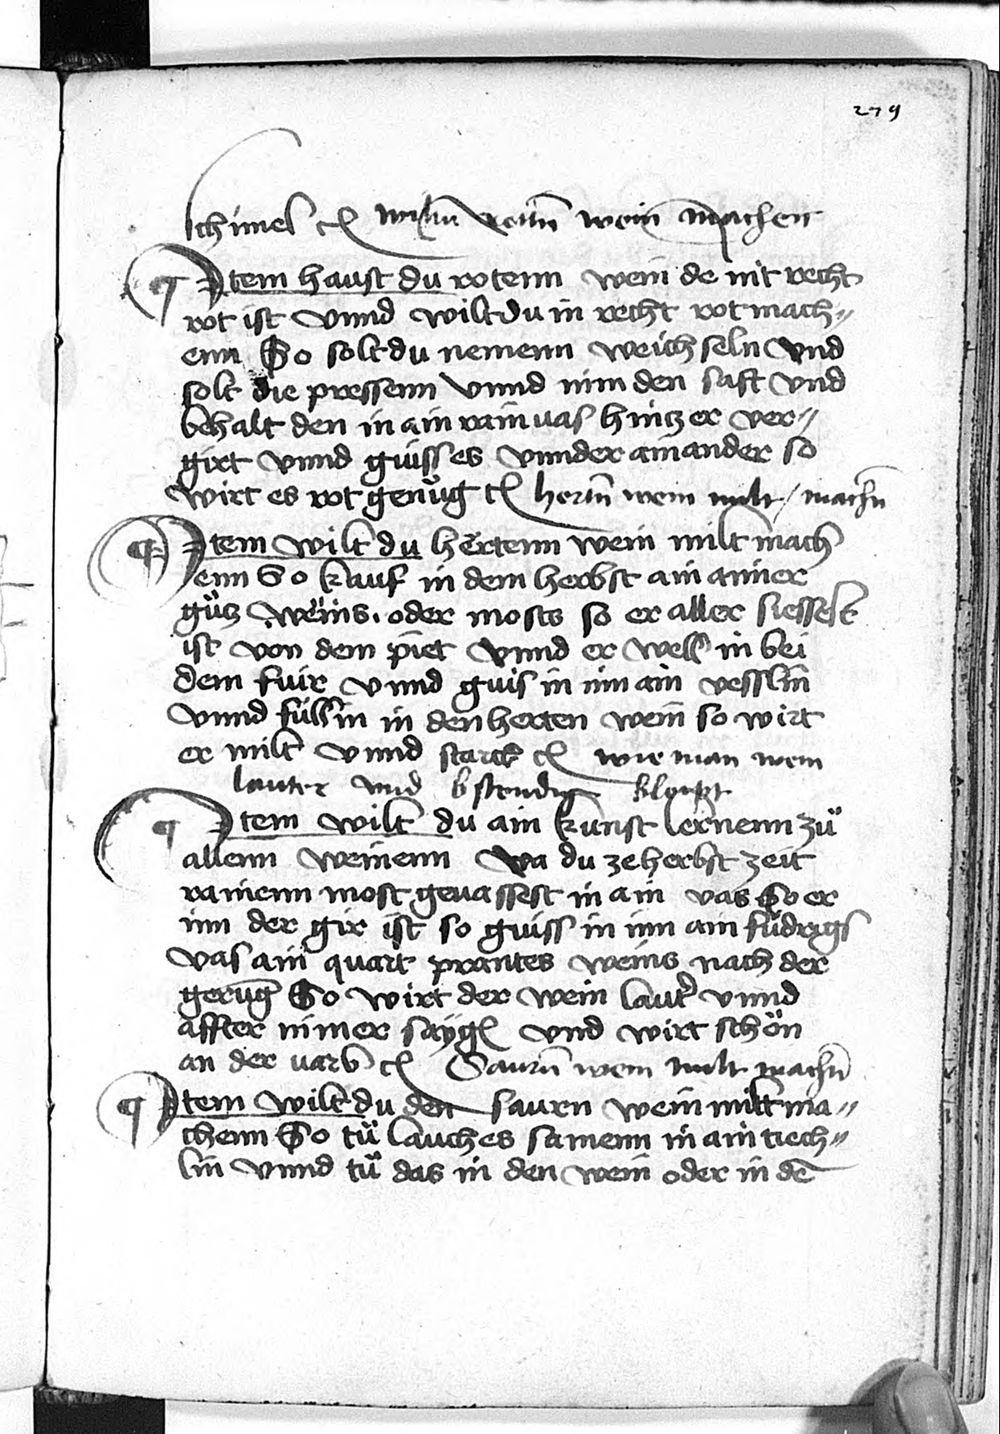 279
schimel etc wiltu rottñ wein machen
Item haust du rotenn wein de nit recht
rot ist vnnd wilt du in recht rot mach=
enn So solt du nemenn weichseln vnd
solt die pressenn vnnd nim den saft vnd
behalt den in ain rain vas hintz er ver=
girt vnnd guiss es vnnder ainander so
wirt es rot genüg etc hertñ wein milt machñ
Item wilt du hertenn wein milt mach
enn So kauf in dem herbst ain aimer
gütz weins oder mosts so er aller siessest
ist von dem piet vnnd er well in bei
dem fuir vnnd guis in inn ain vesslin
vnnd füll in in den herten wein so wirt
er milt vnnd starck etc wie man wein
lauter vnd bstendig
Item wilt du ain kunst lernenn zü
allenn weinenn Wa du ze herbst zeit
rainenn most gevassest in ain vas So er
inn der gir ist so guiss in inn ain füdrigs
vas ain quart prantes weins nach der
gerung So wirt der wein lautr vnnd
affter nimer saÿg vnd wirt schön
an der varb etc Saurñ wein milt machñ
Item wilt du den saurn wein milt ma=
chenn So tü lauches samenn in ain tiech=
lin vnnd tü das in den wein oder in dē